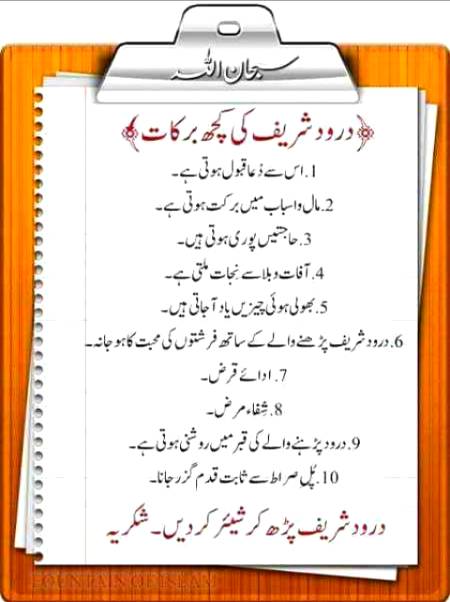 سبحان اللہ
درود شریف کی کچھ برکات
1. اس سے دُعا قبول ہوتی ہے۔
2. مال و اسباب میں برکت ہوتی ہے۔
3. حاجتیں پوری ہوتی ہیں۔
4. آفات و بلا سے نجات ملتی ہے۔
5. بھولی ہوئی چیزیں یاد آ جاتی ہیں۔
6. درود شریف پڑھنے والے کے ساتھ فرشتوں کی محبت کا ہو جانہ۔
7. ادائے قرض۔
8. شِفاء مرض۔
9. درود پڑہنے والے کی قبر میں روشنی ہوتی ہے۔
10. پُل صراط سے ثابت قدم گزر جانا۔
درود شریف پڑھ کر شیئر کر دیں۔ شکریہ
FOUNTAIN OF ISLAM